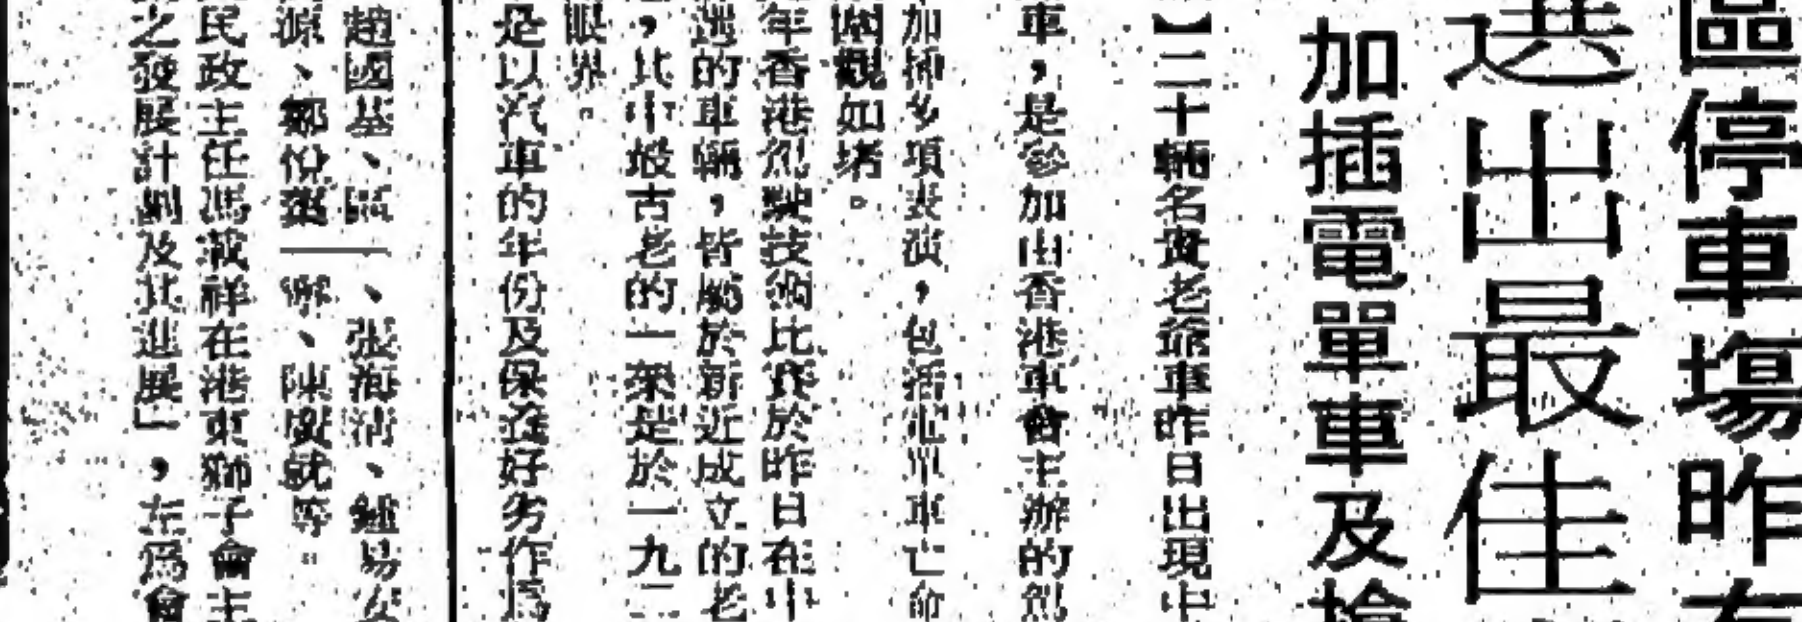 區停車塲昨有
選出最佳
加插電單車及搶
】二十輛名貴老爺車昨日出現中
車，是參加由香港車會主辦的駕
加插多項表演，包括電單車亡命
圍觀如堵。
年香港駕駛技術比賽於昨日在中
選的車輛，皆屬於新近成立的老
，其中最古老的一架是於一九二
眼界。
是以汽車的年份及保養好劣作爲
趙國基、區一、張海清、鍾易
源、鄒份、陳就等。
民政主任馮載祥在港東獅子會主
之發展計劃及其進展」，左爲會